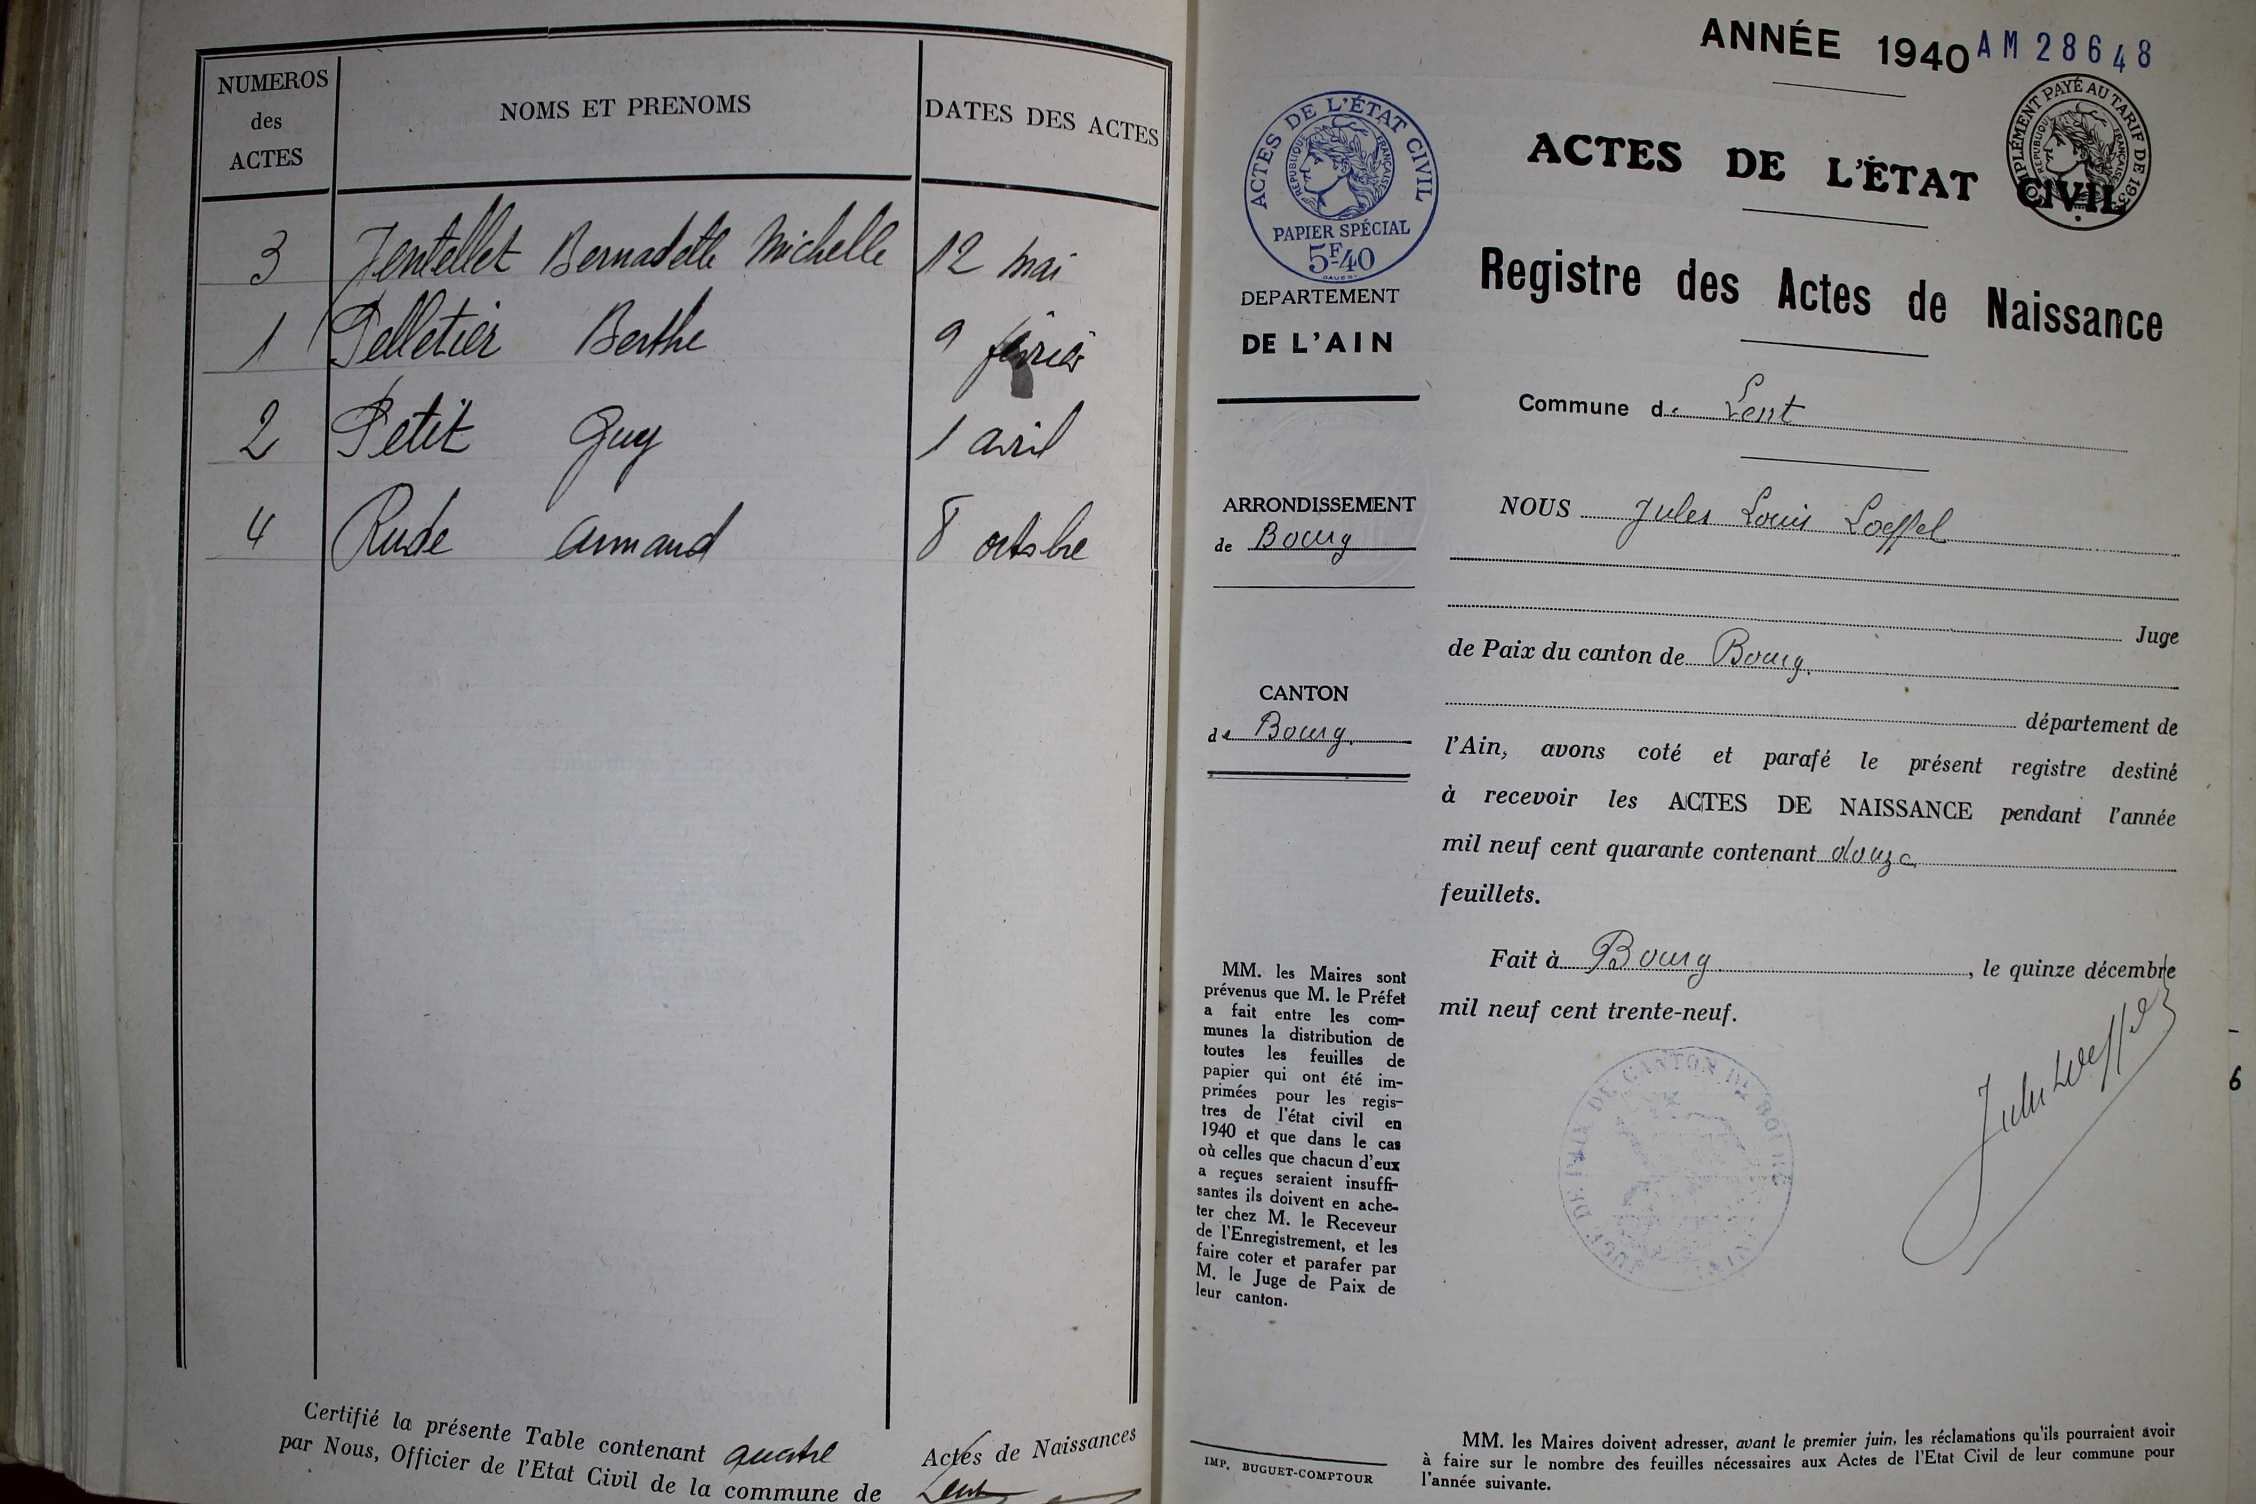 NUMEROS
des
ACTES
NOMS ET PRENOMS
DATES DES ACTES
3 Jentellet Bernadette Michelle 12 mai
1 Pelletier Berthe 9 février
2 Petit Guy 1 avril
4 Rude Armand 8 octobre
Certifié la présente Table contenant quatre Actes de Naissances
par Nous, Officier de l'Etat Civil de la commune de Lent
ANNÉE 1940
AM 28648
ACTES DE L'ÉTAT CIVIL
RÉPUBLIQUE FRANÇAISE
PAPIER SPÉCIAL
5F40
COMPLÉMENT PAYÉ AU TARIF DE 19
RÉPUBLIQUE FRANÇAISE
ACTES DE L'ÉTAT CIVIL
Registre des Actes de Naissance
DEPARTEMENT
DE L'AIN
Commune de Lent
ARRONDISSEMENT
de Bourg
CANTON
de Bourg
NOUS Jules Louis Loeffel
Juge
de Paix du canton de Bourg
département de
l'Ain, avons coté et parafé le présent registre destiné
à recevoir les ACTES DE NAISSANCE pendant l'année
mil neuf cent quarante contenant douze
feuillets.
Fait à Bourg, le quinze décembre
mil neuf cent trente-neuf.
Jules Loeffel
JUGE DE PAIX DE CANTON DE BOURG
MM. les Maires sont
prévenus que M. le Préfet
a fait entre les com-
munes la distribution de
toutes les feuilles de
papier qui ont été im-
primées pour les regis-
tres de l'état civil en
1940 et que dans le cas
où celles que chacun d'eux
a reçues seraient insuffi-
santes ils doivent en ache-
ter chez M. le Receveur
de l'Enregistrement, et les
faire coter et parafer par
M. le Juge de Paix de
leur canton.
6
IMP. BUGUET-COMPTOUR
MM. les Maires doivent adresser, avant le premier juin, les réclamations qu'ils pourraient avoir
à faire sur le nombre des feuilles nécessaires aux Actes de l'Etat Civil de leur commune pour
l'année suivante.